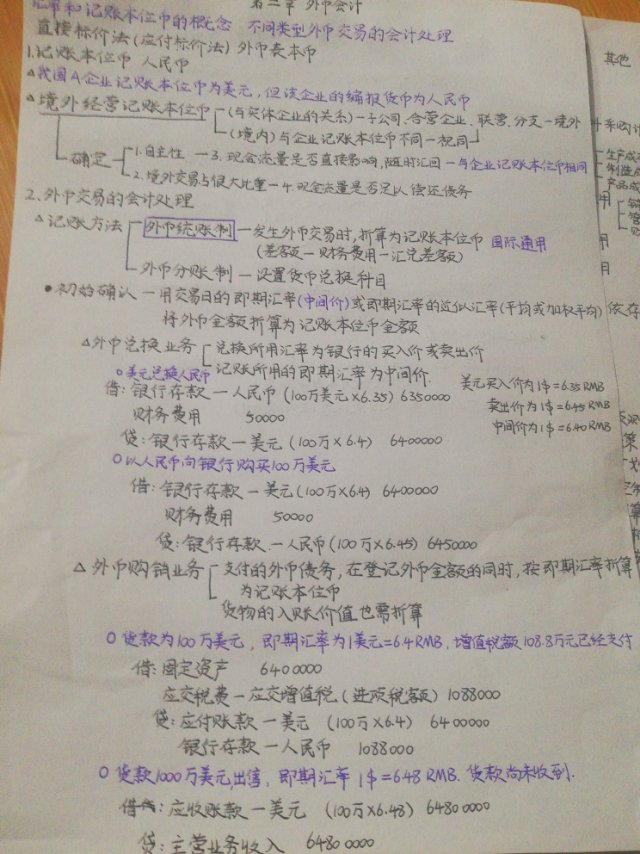 第二章 外币会计
汇率和记账本位币的概念 不同类型外币交易的会计处理
直接标价法(应付标价法) 外币表本币
1.记账本位币 人民币
△我国A企业记账本位币为美元,但该企业的编报货币为人民币
△境外经营记账本位币 (与实体企业的关系)—子公司、合营企业、联营、分支—境外
(境内)与企业记账本位币不同—视同
确定 1.自主性 —3.现金流量是否直接影响,随时汇回—与企业记账本位币相同
2.境外交易占很大比重—4.现金流量是否足以偿还债务
2.外币交易的会计处理
△记账方法 外币统账制—发生外币交易时,折算为记账本位币 国际通用
(差额—财务费用—汇兑差额)
外币分账制—设置货币兑换科目
●初始确认—用交易日的即期汇率(中间价)或即期汇率的近似汇率(平均或加权平均)
将外币金额折算为记账本位币金额
△外币兑换业务 兑换所用汇率为银行的买入价或卖出价
记账所用的即期汇率为中间价.
○美元兑换人民币
美元买入价为1$=6.35RMB
借:银行存款—人民币(100万美元×6.35) 6350000
卖出价为1$=6.45RMB
财务费用 50000
中间价为1$=6.40RMB
贷:银行存款—美元(100万×6.4) 6400000
○以人民币向银行购买100万美元
借:银行存款—美元(100万×6.4) 6400000
财务费用 50000
贷:银行存款—人民币(100万×6.45) 6450000
△外币购销业务 支付的外币债务,在登记外币金额的同时,按即期汇率折算
为记账本位币
货物的入账价值也需折算
○货款为100万美元,即期汇率为1美元=6.4RMB,增值税额108.8万元已经支付
借:固定资产 6400000
应交税费—应交增值税(进项税额) 1088000
贷:应付账款—美元(100万×6.4) 6400000
银行存款—人民币 1088000
○货款1000万美元,出售,即期汇率1$=6.48RMB.货款尚未收到.
借:应收账款—美元(100万×6.48) 64800000
贷:主营业务收入 64800000
其他
生产成
制造
产品成
依存